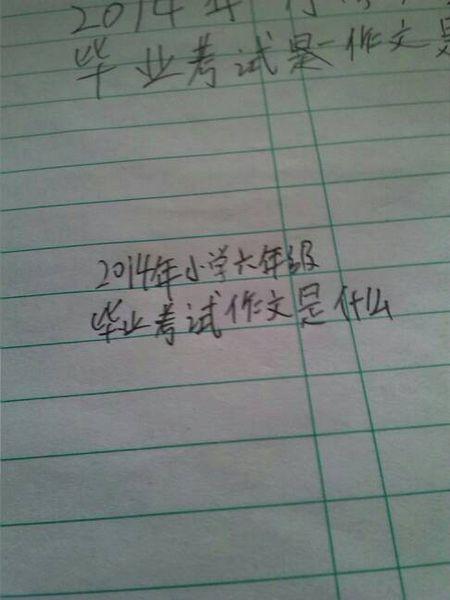 2014年
毕业考试是作文是
2014年小学六年级
毕业考试作文是什么